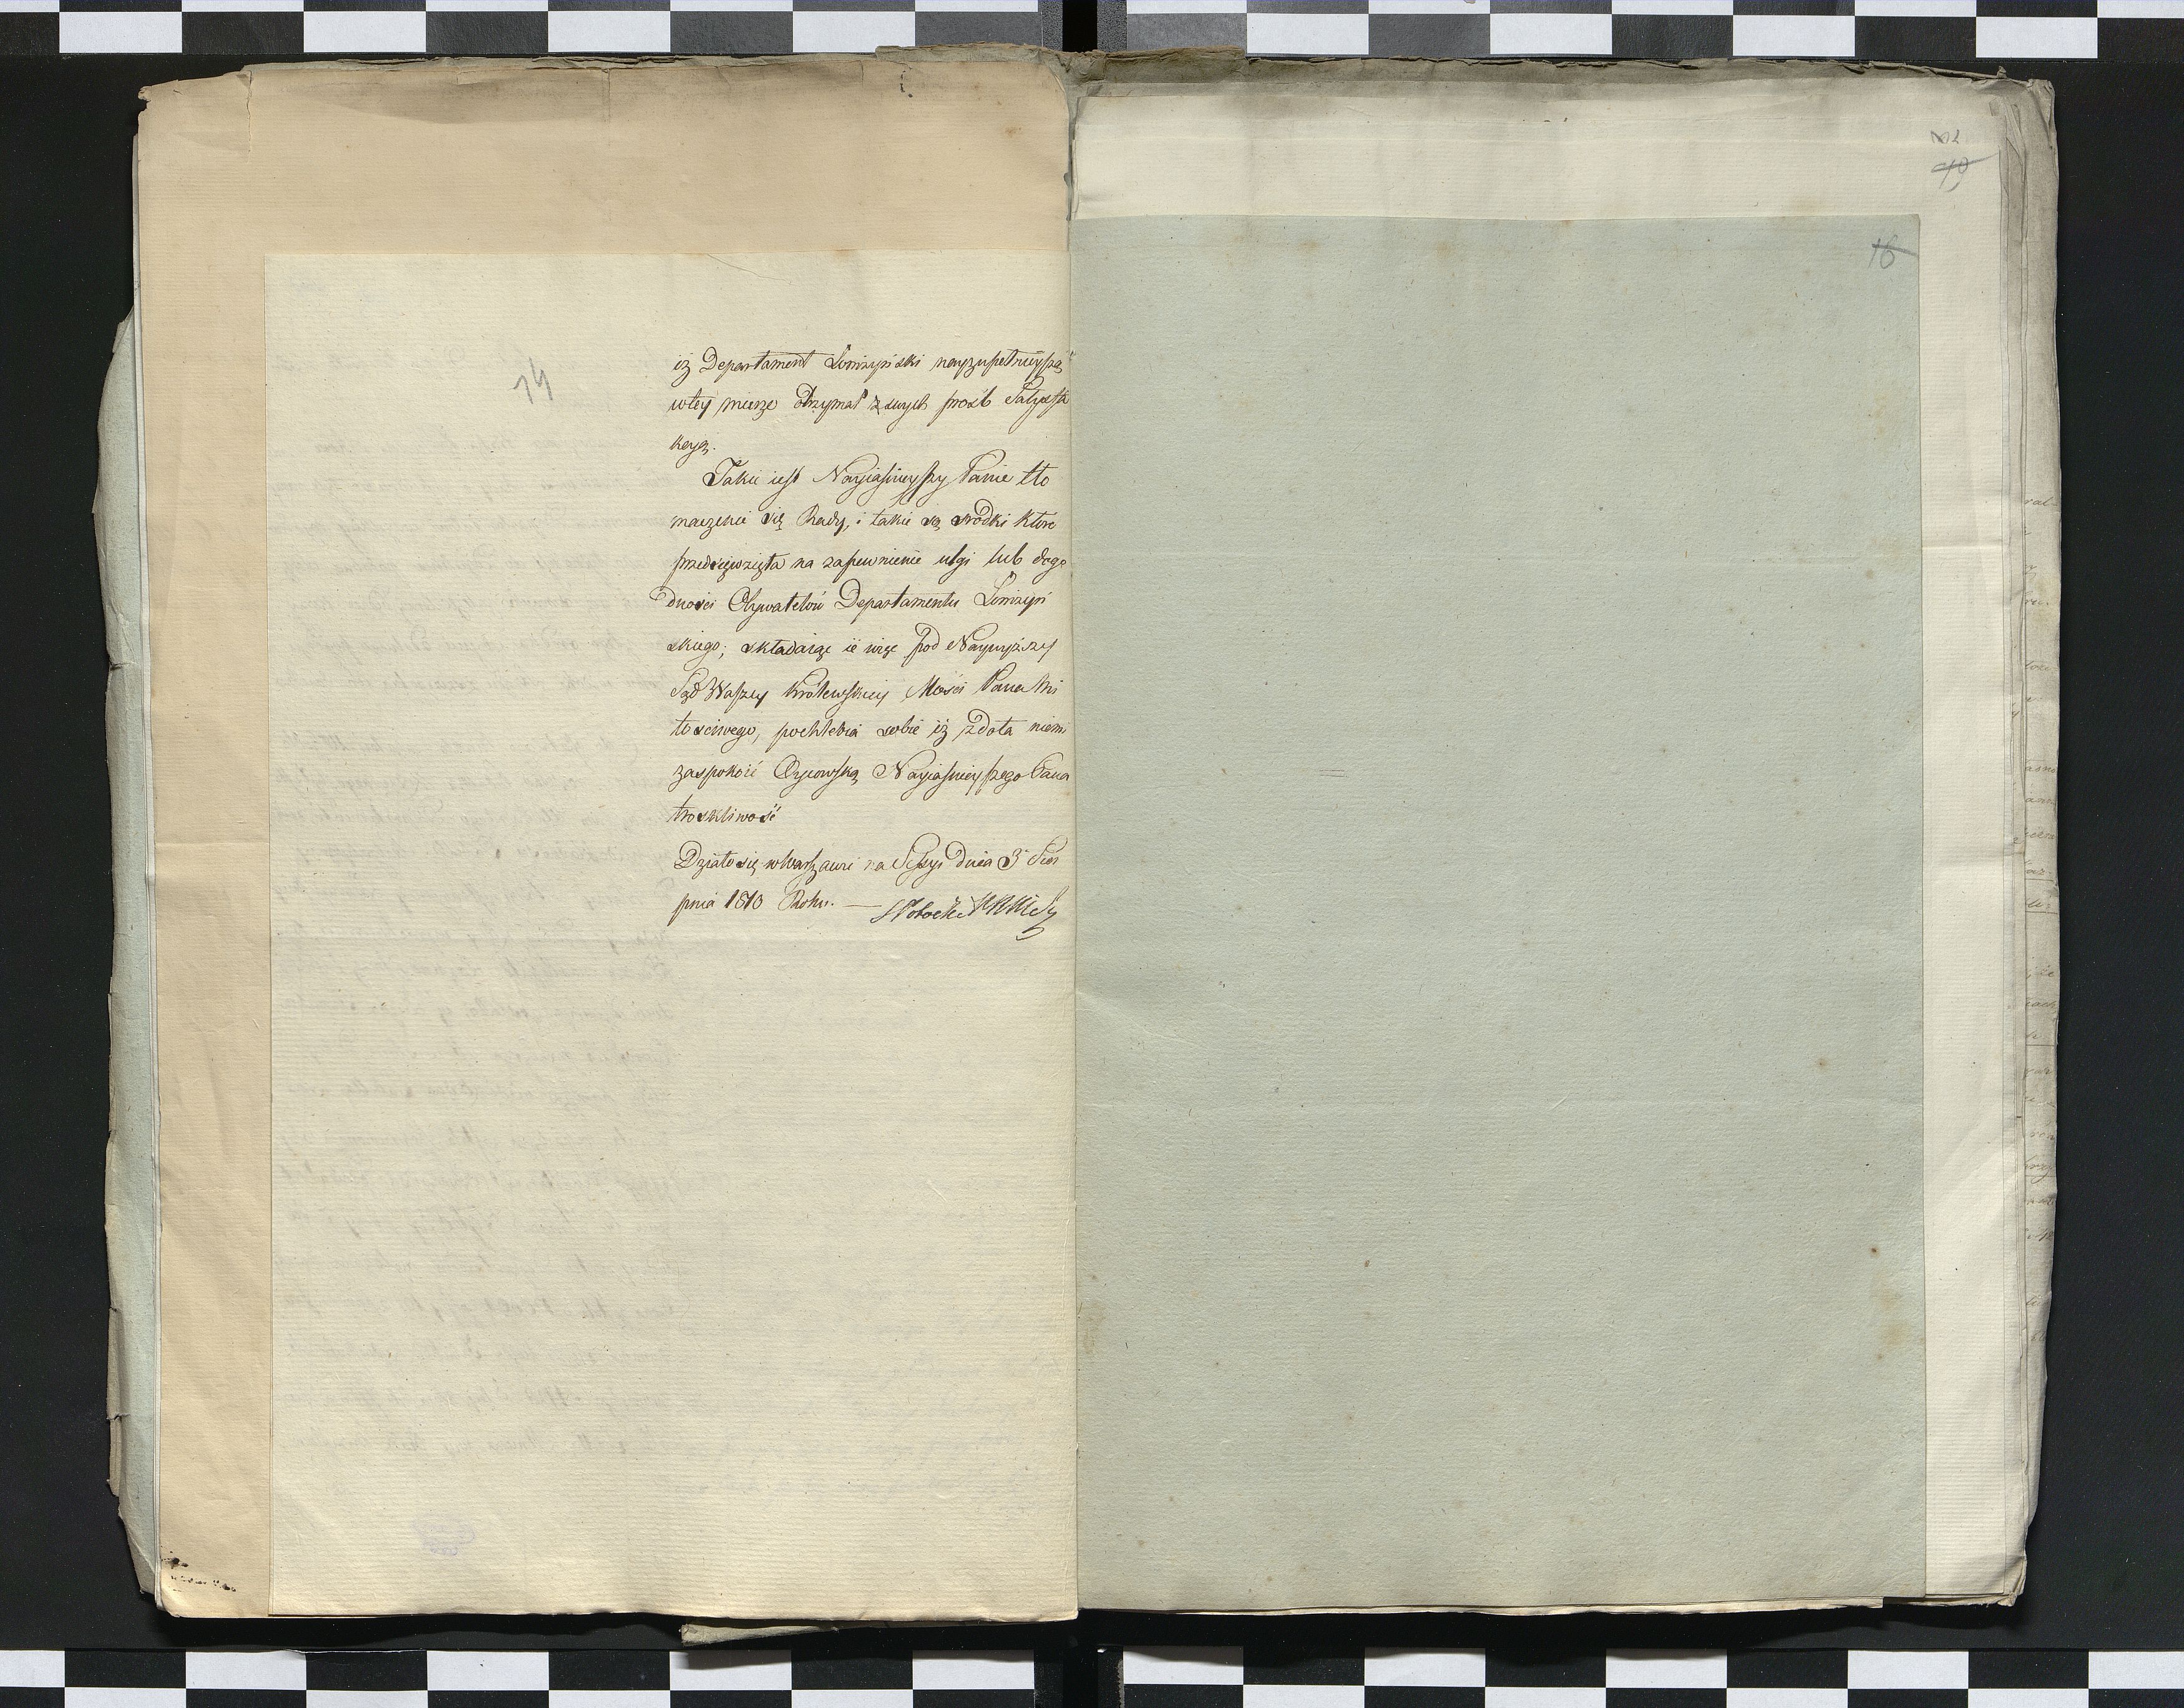 14
iż Departament Łomżyński nayzupełnieyszą
w tey mierze otrzymał z swych prośb Satysfa
kcyą.
Takie iest Nayiaśnieyszy Panie tło
maczenie się Rady, i takie są środki które
przedsięwzięła na zapewnienie ulgi lub dogo
dności Obywatelów Departamentu Łomżyń
skiego; składaiąc ie więc pod Naywyższy
Sąd Waszey Królewskiey Mości Pana Mi
łościwego, pochlebia sobie iż zdoła niemi
zaspokoić Oycowską Nayiaśnieyszego Pana
troskliwość
Działo się w Warszawie na Sessyi Dnia 3 Sier
pnia 1810 Roku. — S Potocki
16